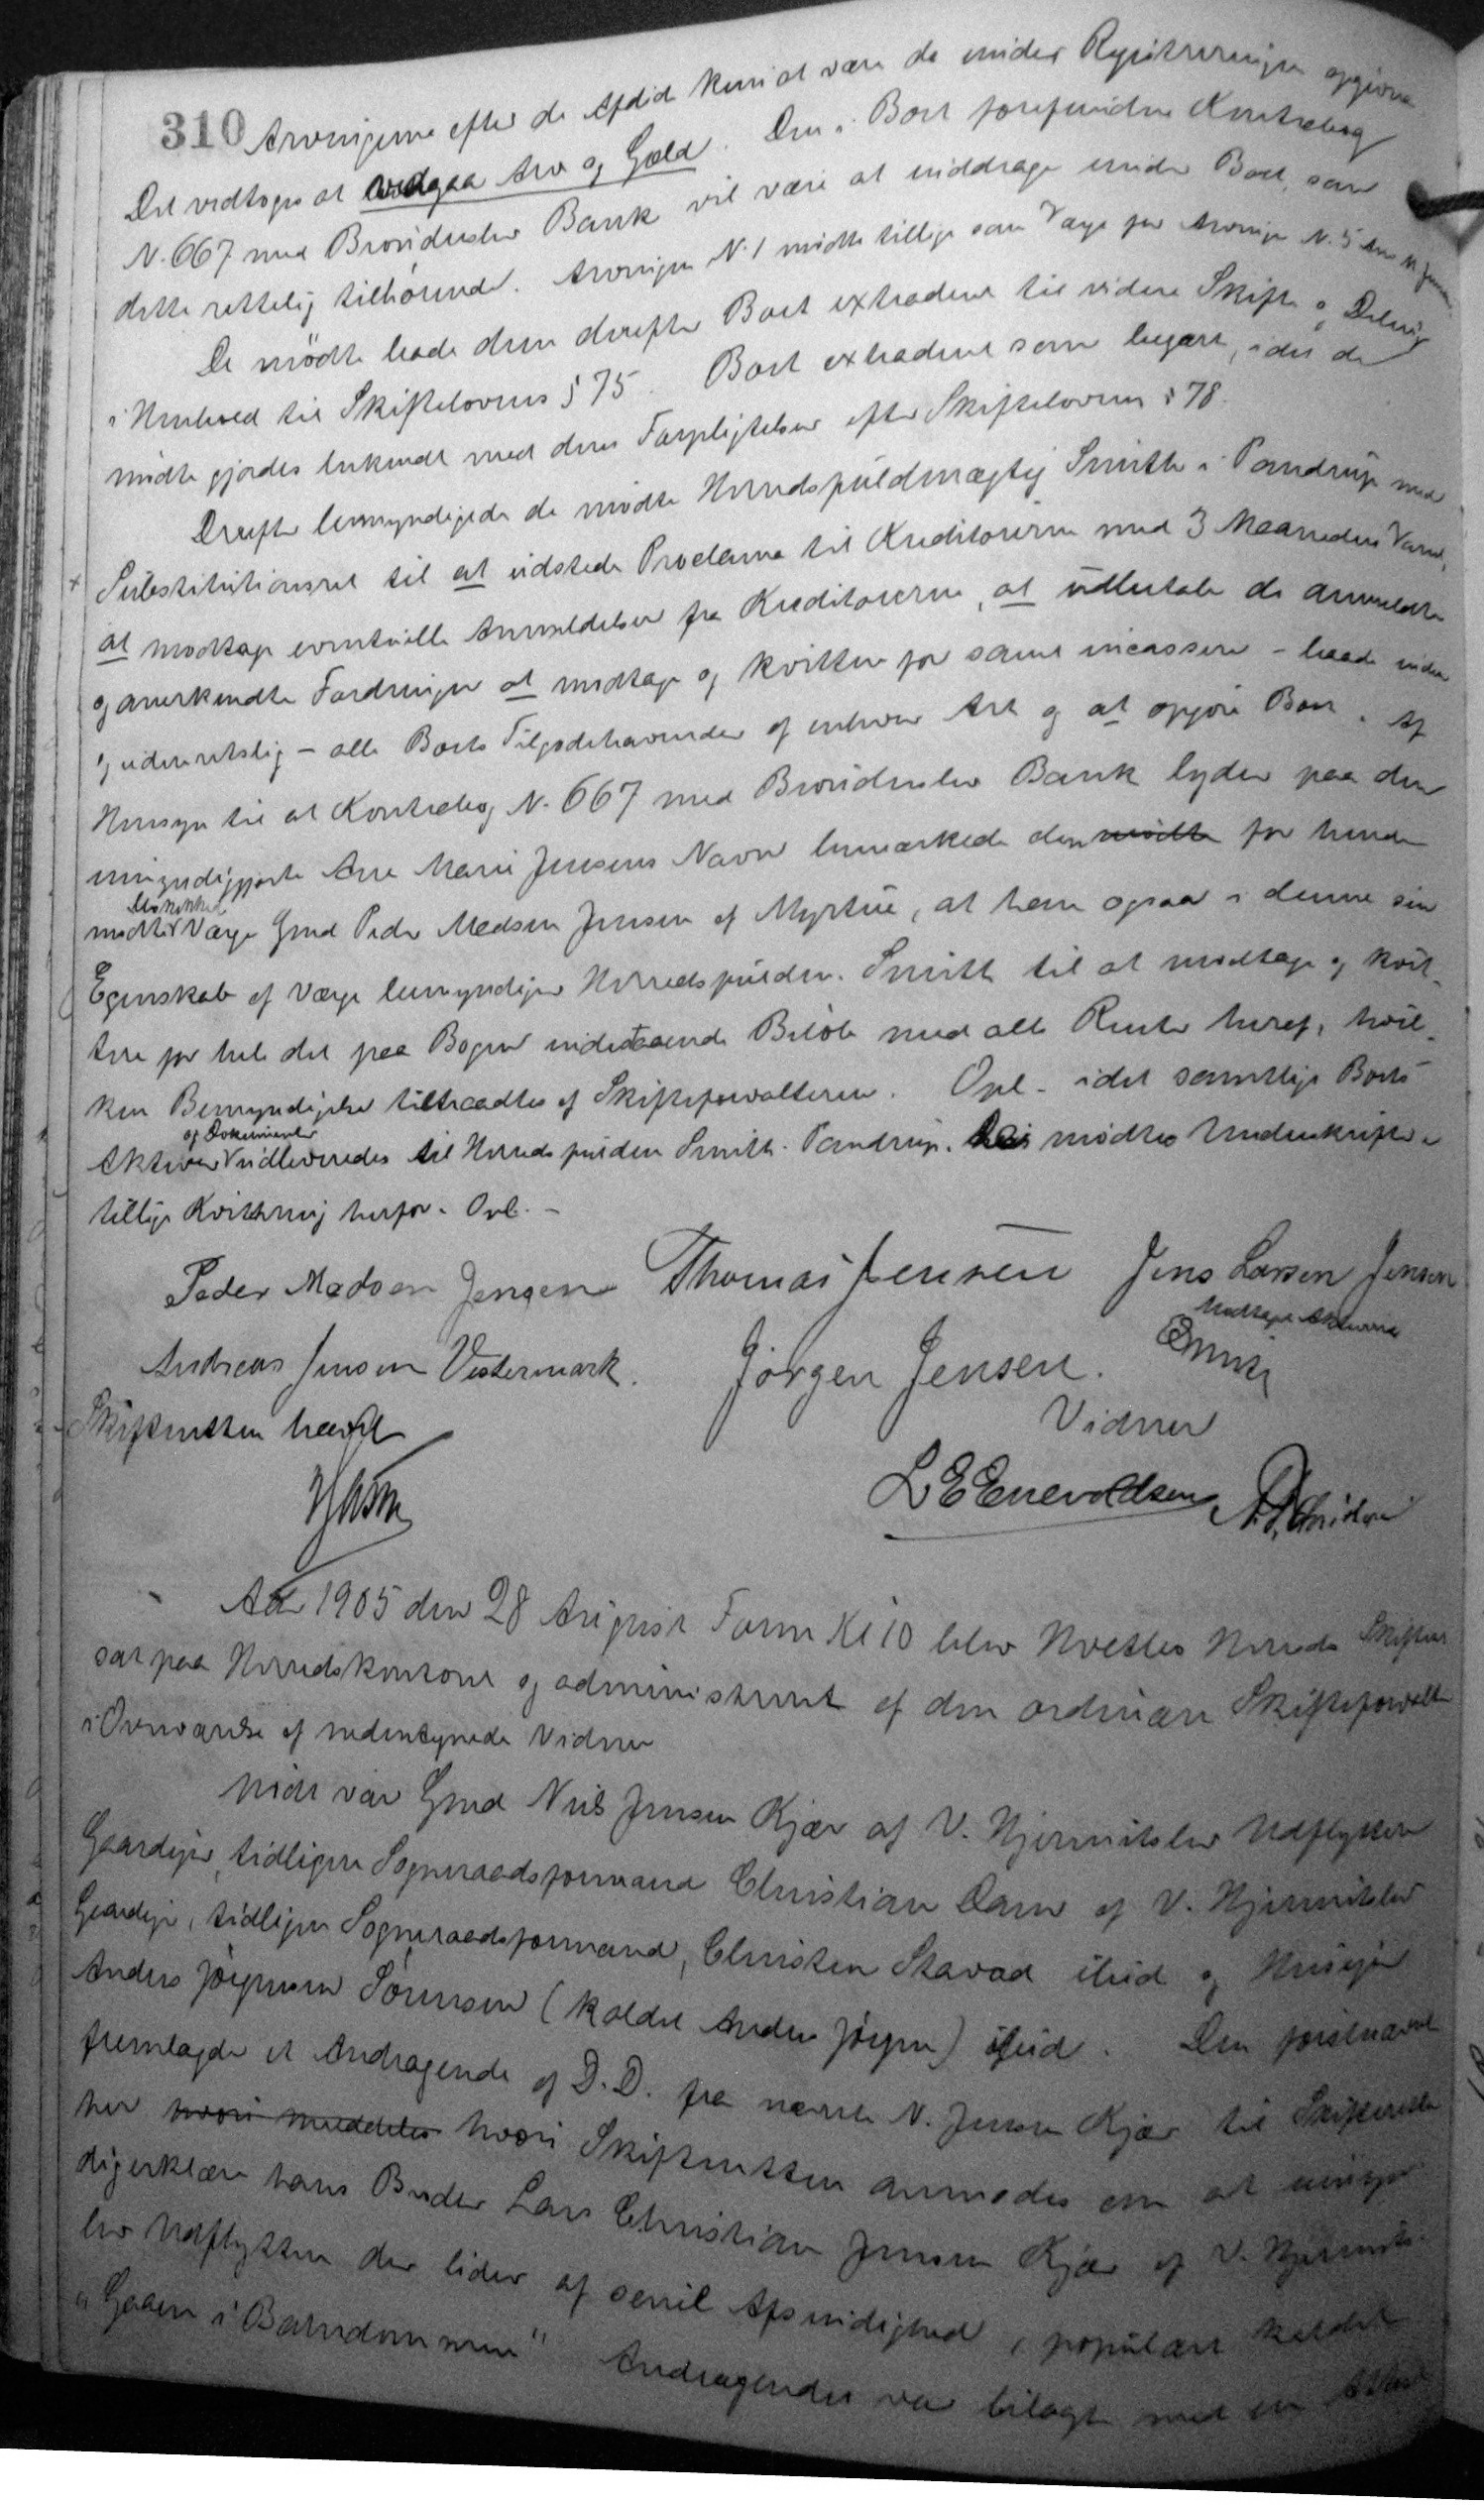 310 Arvingerne efter de Afdøde kun at være de under Registreringen opgivne
Det vedtoges at vedgaa Arv og Gæld. Den i Boet forefundne Kontrabog
N. 667 med Brønderslev Bank vil være at inddrage under Boet, som
dette rettelig tilhørende. Arvingen N. 1 mødte tillige som Værge for Arvinge N. 5 Ane M Jensen.
De mødte bade dem derefter Boet extraderet til videre Skifte og Deling
i Henhold til Skiftelovens § 75. Boet extraderet som begært, idet de
mødte gjordes bekendt med deres Forpligtelser efter Skifteloven § 78.
Derefter bemyndigede de mødte Herredsfuldmægtig Smith i Pandrup med
+ Substitutionsret til at udstede Proclama til Kreditorerne med 3 Maaneders Varsel,
at modtage eventuelle Anmeldelser fra Kreditorerne, at udbetale de anmeldte
og anerkendte Fordringer at modtage og kvittere for samt incassere - baade inden
og udenretslig - alle Boets Tilgodehavender af enhver Art og at opgøre Boet. Af
Hensyn til at Kontrabog N. 667 med Brønderslev Bank lyder paa den
umyndiggjorte Ane Marie Jensens Navn bemærkede den mødte for hende
beskikket
mødte Værge Gmd Peder Madsen Jensen af Myrtue, at han ogsaa i denne sin
Egenskab af Værge bemyndiger Herredsfuldm. Smith til at modtage og kvit-
tere for hele det paa Bogen indestaaende Beløb med alle Renter heraf, hvil-
ken Bemyndigelse tiltraadtes af Skifteforvalteren. Opl. - idet samtlige Boets
og Dokumenter
Aktiver udleveredes til Herredsfuldm Smith. Pandrup. De mødtes Underskrift er
tillige Kvittering herfor. Opl. -
Peder Madsen Jensen Thomas Jensen Jens Larsen Jensen
Modtaget Aktiverne
Andreas Jensen Vestermark. Jörgen Jensen. Smith
Skifteretten hævet Vidner
L E Enevoldsen
Aar 1905 den 28 August Form Kl 10 blev Hvetbo Herreds Skifteret
sat paa Herredskontoret og administreret af den ordinære Skifteforvalter
i Overværelse af nedentegnede Vidner
Mødt var Gmd Niels Jensen Kjær af V. Hjermitslev Udflytter
Gaardejer, tidligere Sogneraadsformand Christian Dam af V. Hjermitslev
Gaardejer, tidligere Sogneraadsformand, Christen Stavad ibid og Husejer
Anders Jørgensen Sørensen (kaldet Anders Jørgen) ibid. Den førstnævnte
fremlagde et Andragende af D. D. fra nævnte N. Jensen Kjær til Skifteretten
her hvori meddeles hvori Skifteretten anmodes om at umyn
digerklære hans Broder Lars Christian Jensen Kjær af V. Hjermits-
lev Udflytter der lider af senil Afsindighed, populært kaldet
"Gaaen i Barndommen" Andragendet var bilagt med en Attest